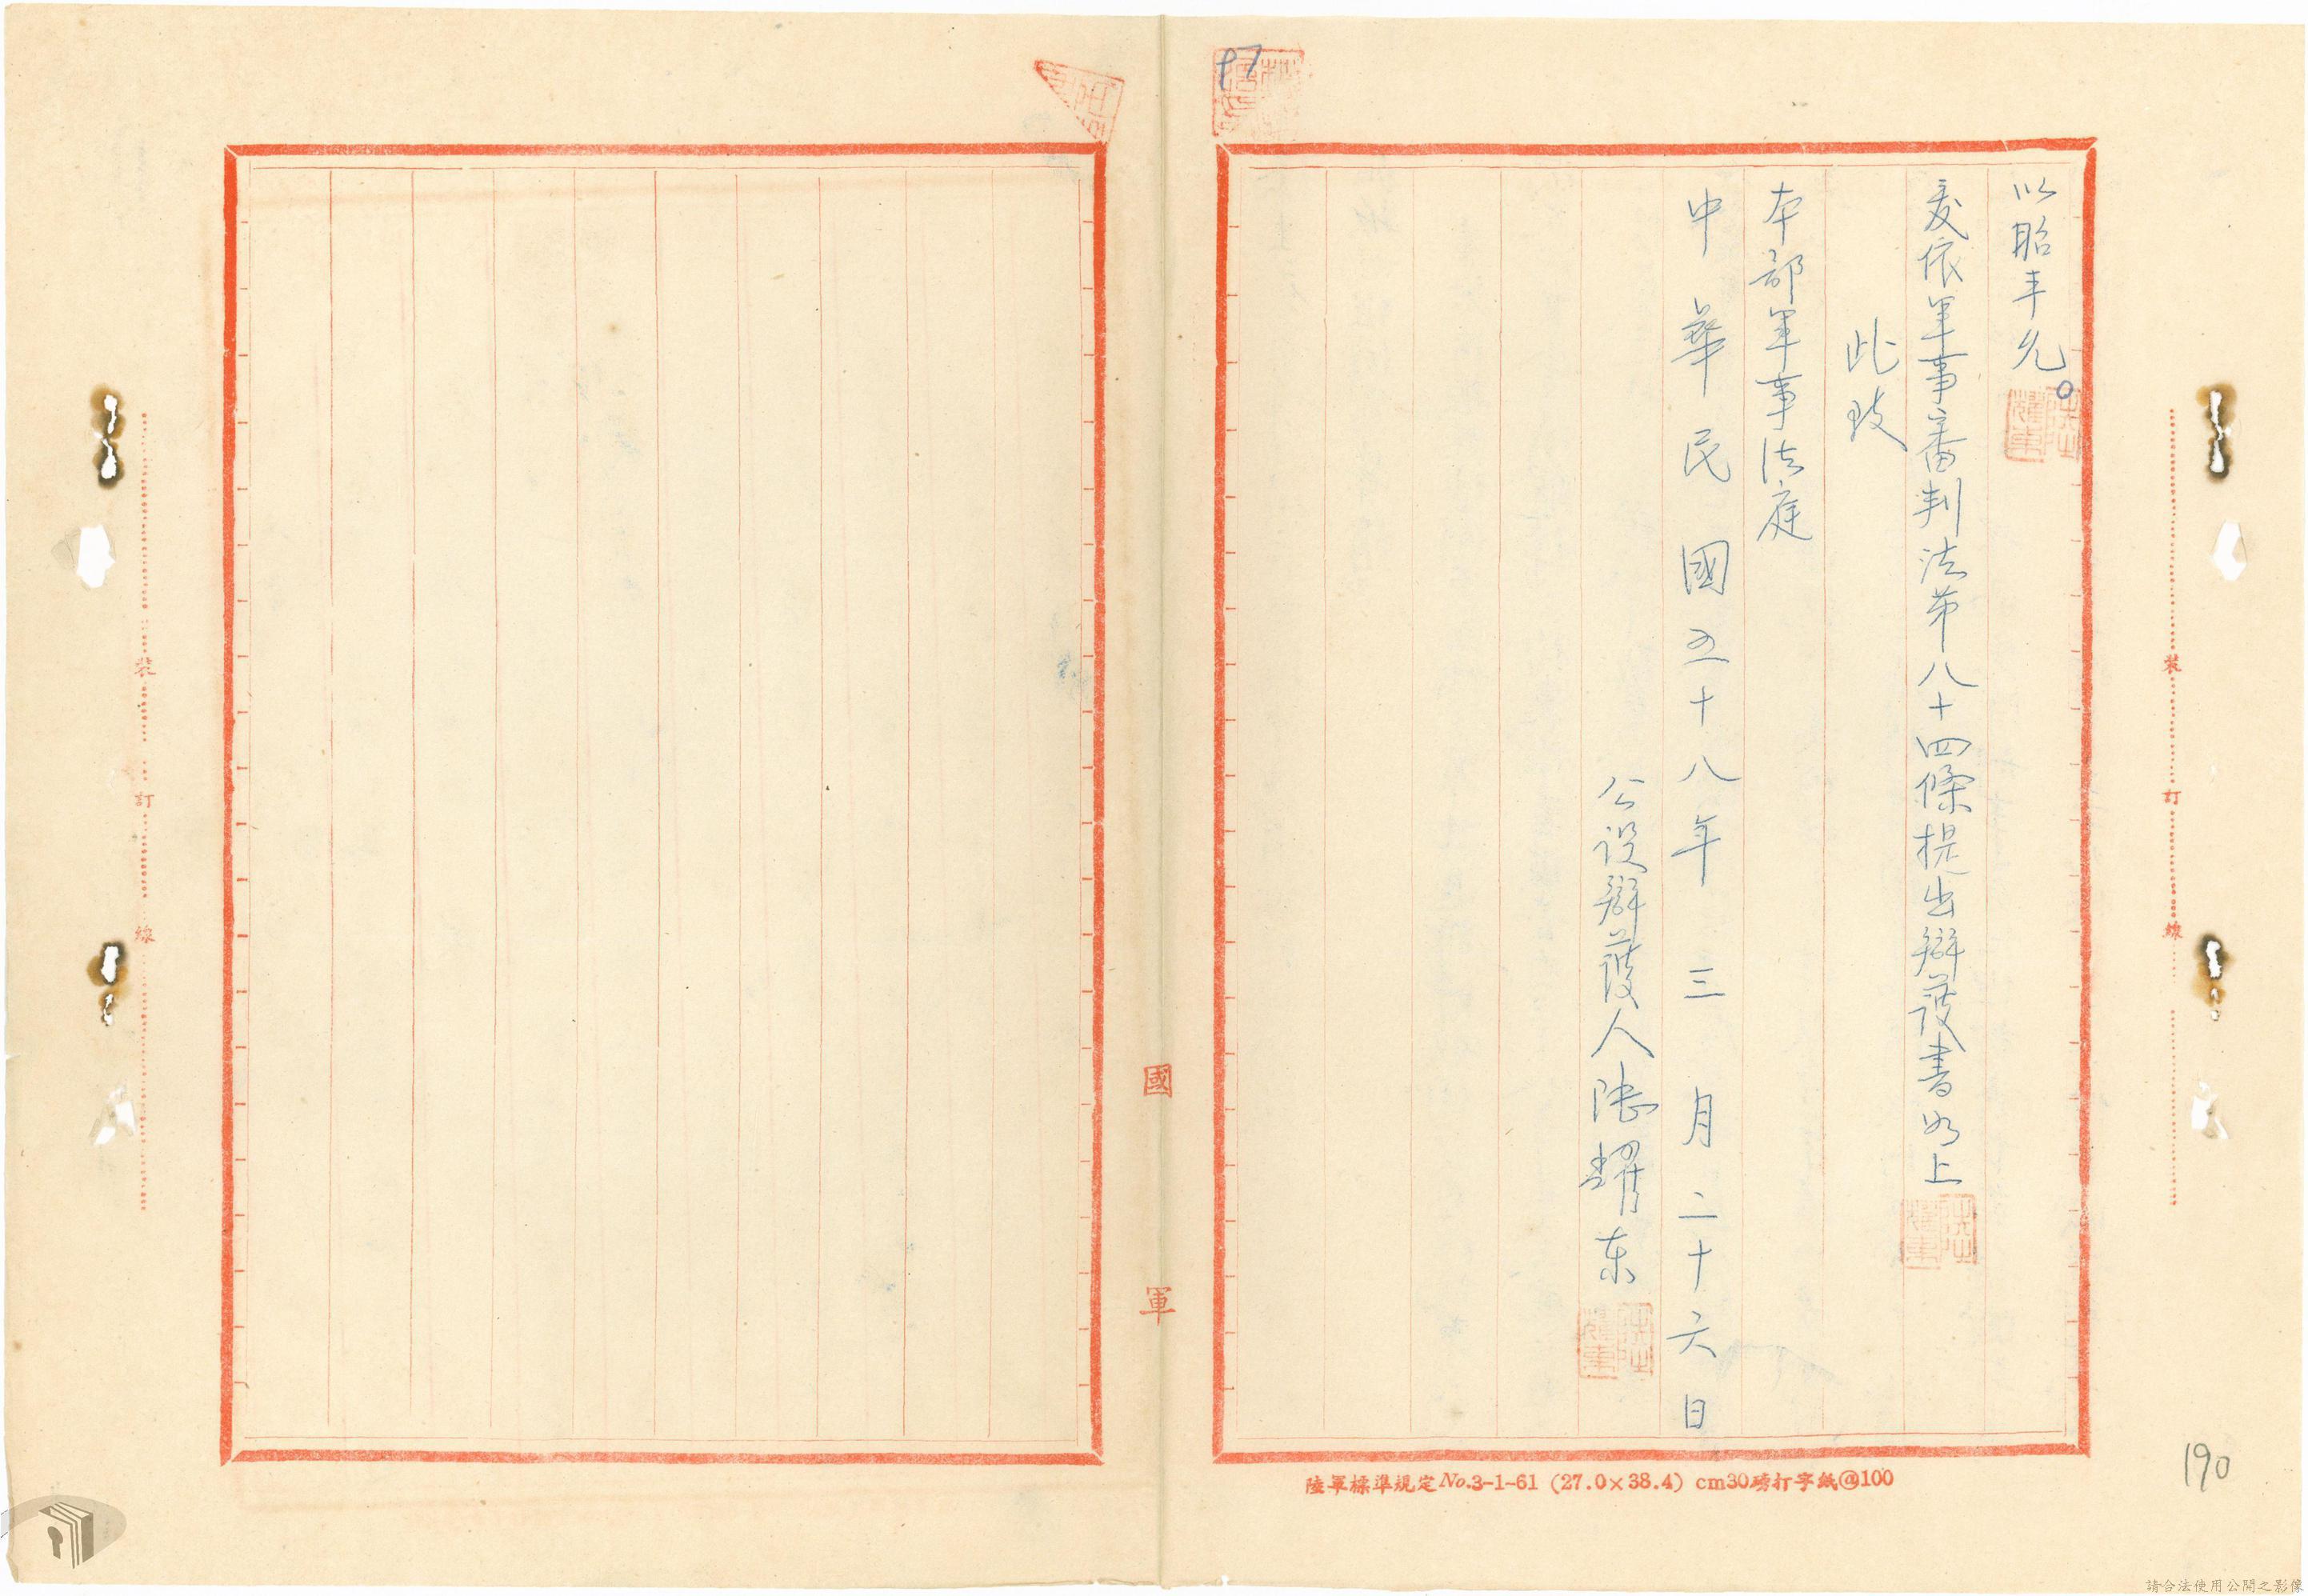 97
以昭平允。
陸耀東
爰依軍事審判法第八十四條提出辯護書如上
陸耀東
此致
本部軍事法庭
中華民國五十八年三月二十六日
公設辯護人陸耀東
陸耀東
裝訂線
陸軍標準規定No.3-1-61 (27.0×38.4) cm30磅打字紙@100
190
國軍
裝訂線
請合法使用公開之影像